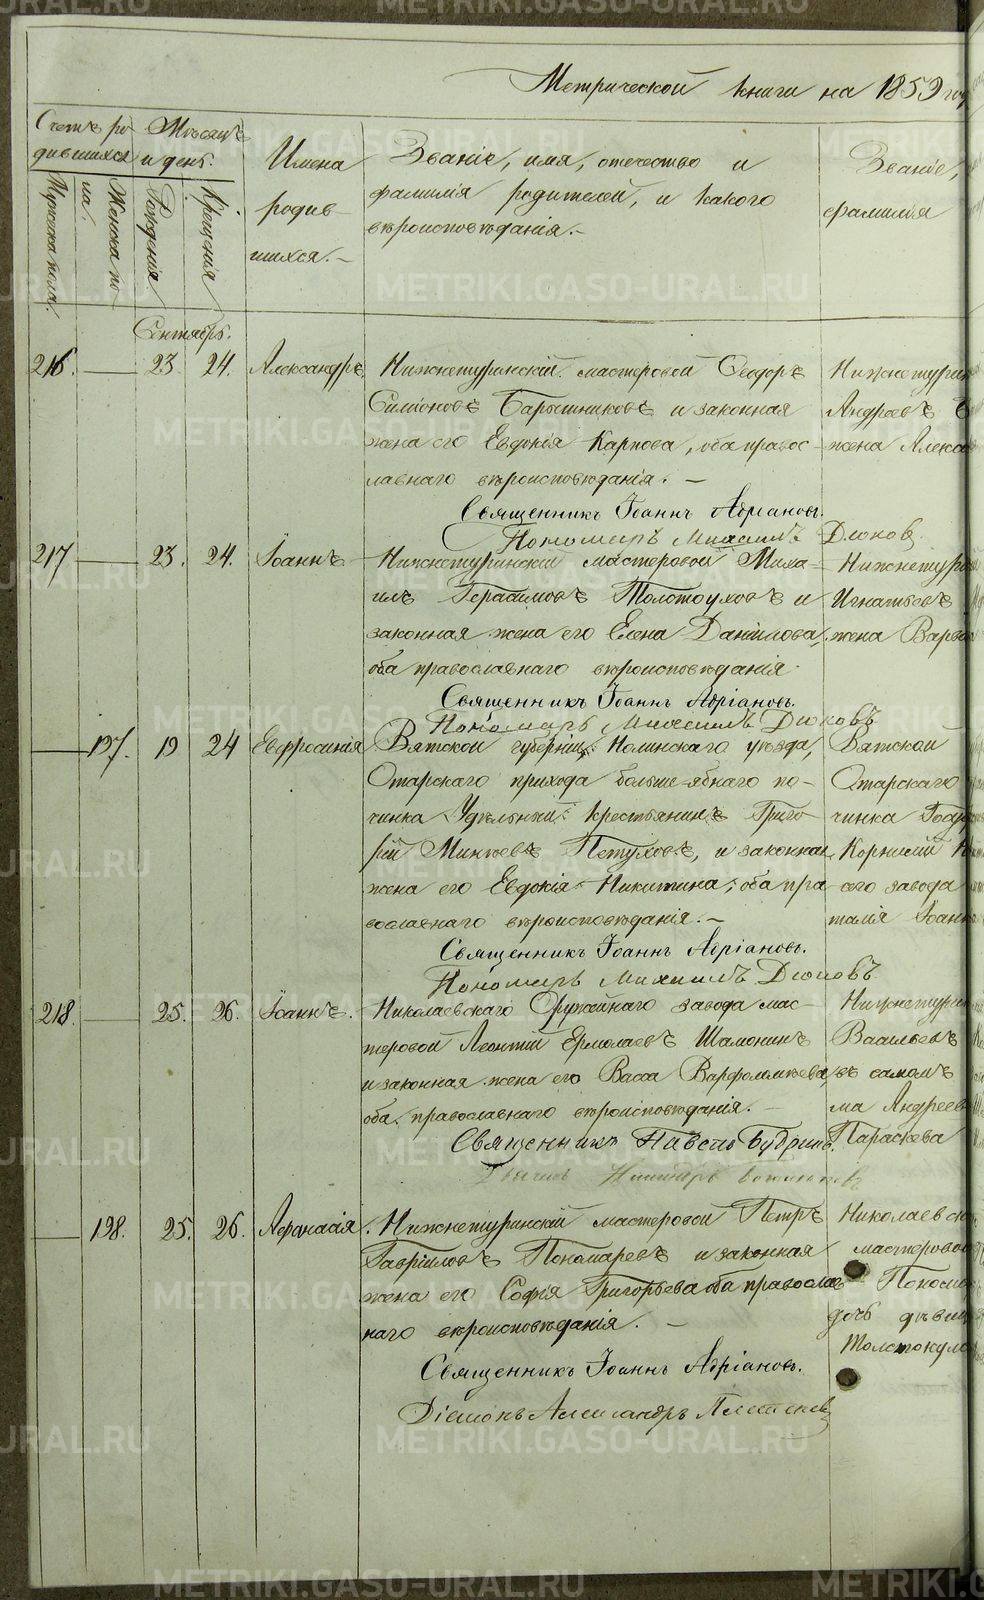 Метрической книги на 1859 год
Счетъ ро-
дившихся
Мужска пола.
Женска по-
ла.
Мѣсяцъ
и день.
Рожденія
Крещенія
Имена
родив-
шихся.-
Званіе, имя, отечество и
фамилія родителей, и какого
вѣроисповѣданія.-
Званіе,
фамилія
Сентябрь.
216. — 23. 24. Александръ
Нижнетуринскій мастеровой Ѳеодоръ
Симіоновъ Барышниковъ и законная
жена его Евдокія Карпова, оба правос-
лавнаго вѣроисповѣданія. —
Священникъ Іоаннъ Адріановъ.
Пономарь Михаилъ Дюков
Нижнетурин
Андреевъ
жена Алекса
217 — 23. 24. Іоаннъ
Нижнетуринскій мастеровой Миха-
илъ Герасимовъ Толстоуховъ и
законная жена его Елена Даніилова,
оба православнаго вѣроисповѣданія.
Священникъ Іоаннъ Адріановъ.
Пономарь Михаилъ Дюковъ
Нижнетурин
Игнатьевъ
жена Варва
— 197. 19 24 Евфросинія
Вятской губерніи Нолинскаго уѣзда,
Отарскаго прихода больше-ябнаго по-
чинка Удѣльный крестьянинъ Григо-
рій Минѣевъ Пѣтуховъ, и законная
жена его Евдокія Никитина, оба пра-
вославнаго вѣроисповѣданія. —
Священникъ Іоаннъ Адріановъ.
Пономарь Михаилъ Дюковъ
Вятской
Отарскаго
чинка
Корнилій
сего завода
талія Іоанн
218. — 25. 26. Іоаннъ.
Николаевскаго Оружейнаго завода мас-
теровой Леонтій Ермолаевъ Шамонинъ
и законная жена его Васса Варфоломѣева,
оба православнаго вѣроисповѣданія. —
Священникъ Павелъ Бубринъ.
Нижнетурин
Васильевъ
въ самомъ
ма Андреев
Параскева
— 198. 25. 26. Аѳанасія.
Нижнетуринскій мастеровой Петръ
Гавріиловъ Пономаревъ и законная
жена его Софія Григорьева оба православ-
наго вѣроисповѣданія. —
Священникъ Іоаннъ Адріановъ.
Діаконъ Александръ
Николаевск
мастерово
дочь дѣвиц
METRIKI.GASO-URAL.RU